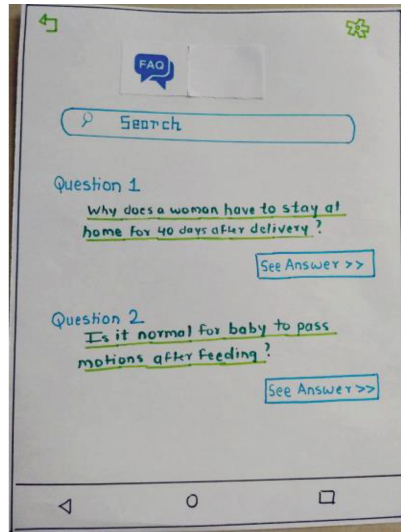 FAQ
Search
Question 1
Why does a woman have to stay at
home for 40 days after delivery?
See Answer >>
Question 2
Is it normal for baby to pass
motions after feeding?
See Answer >>